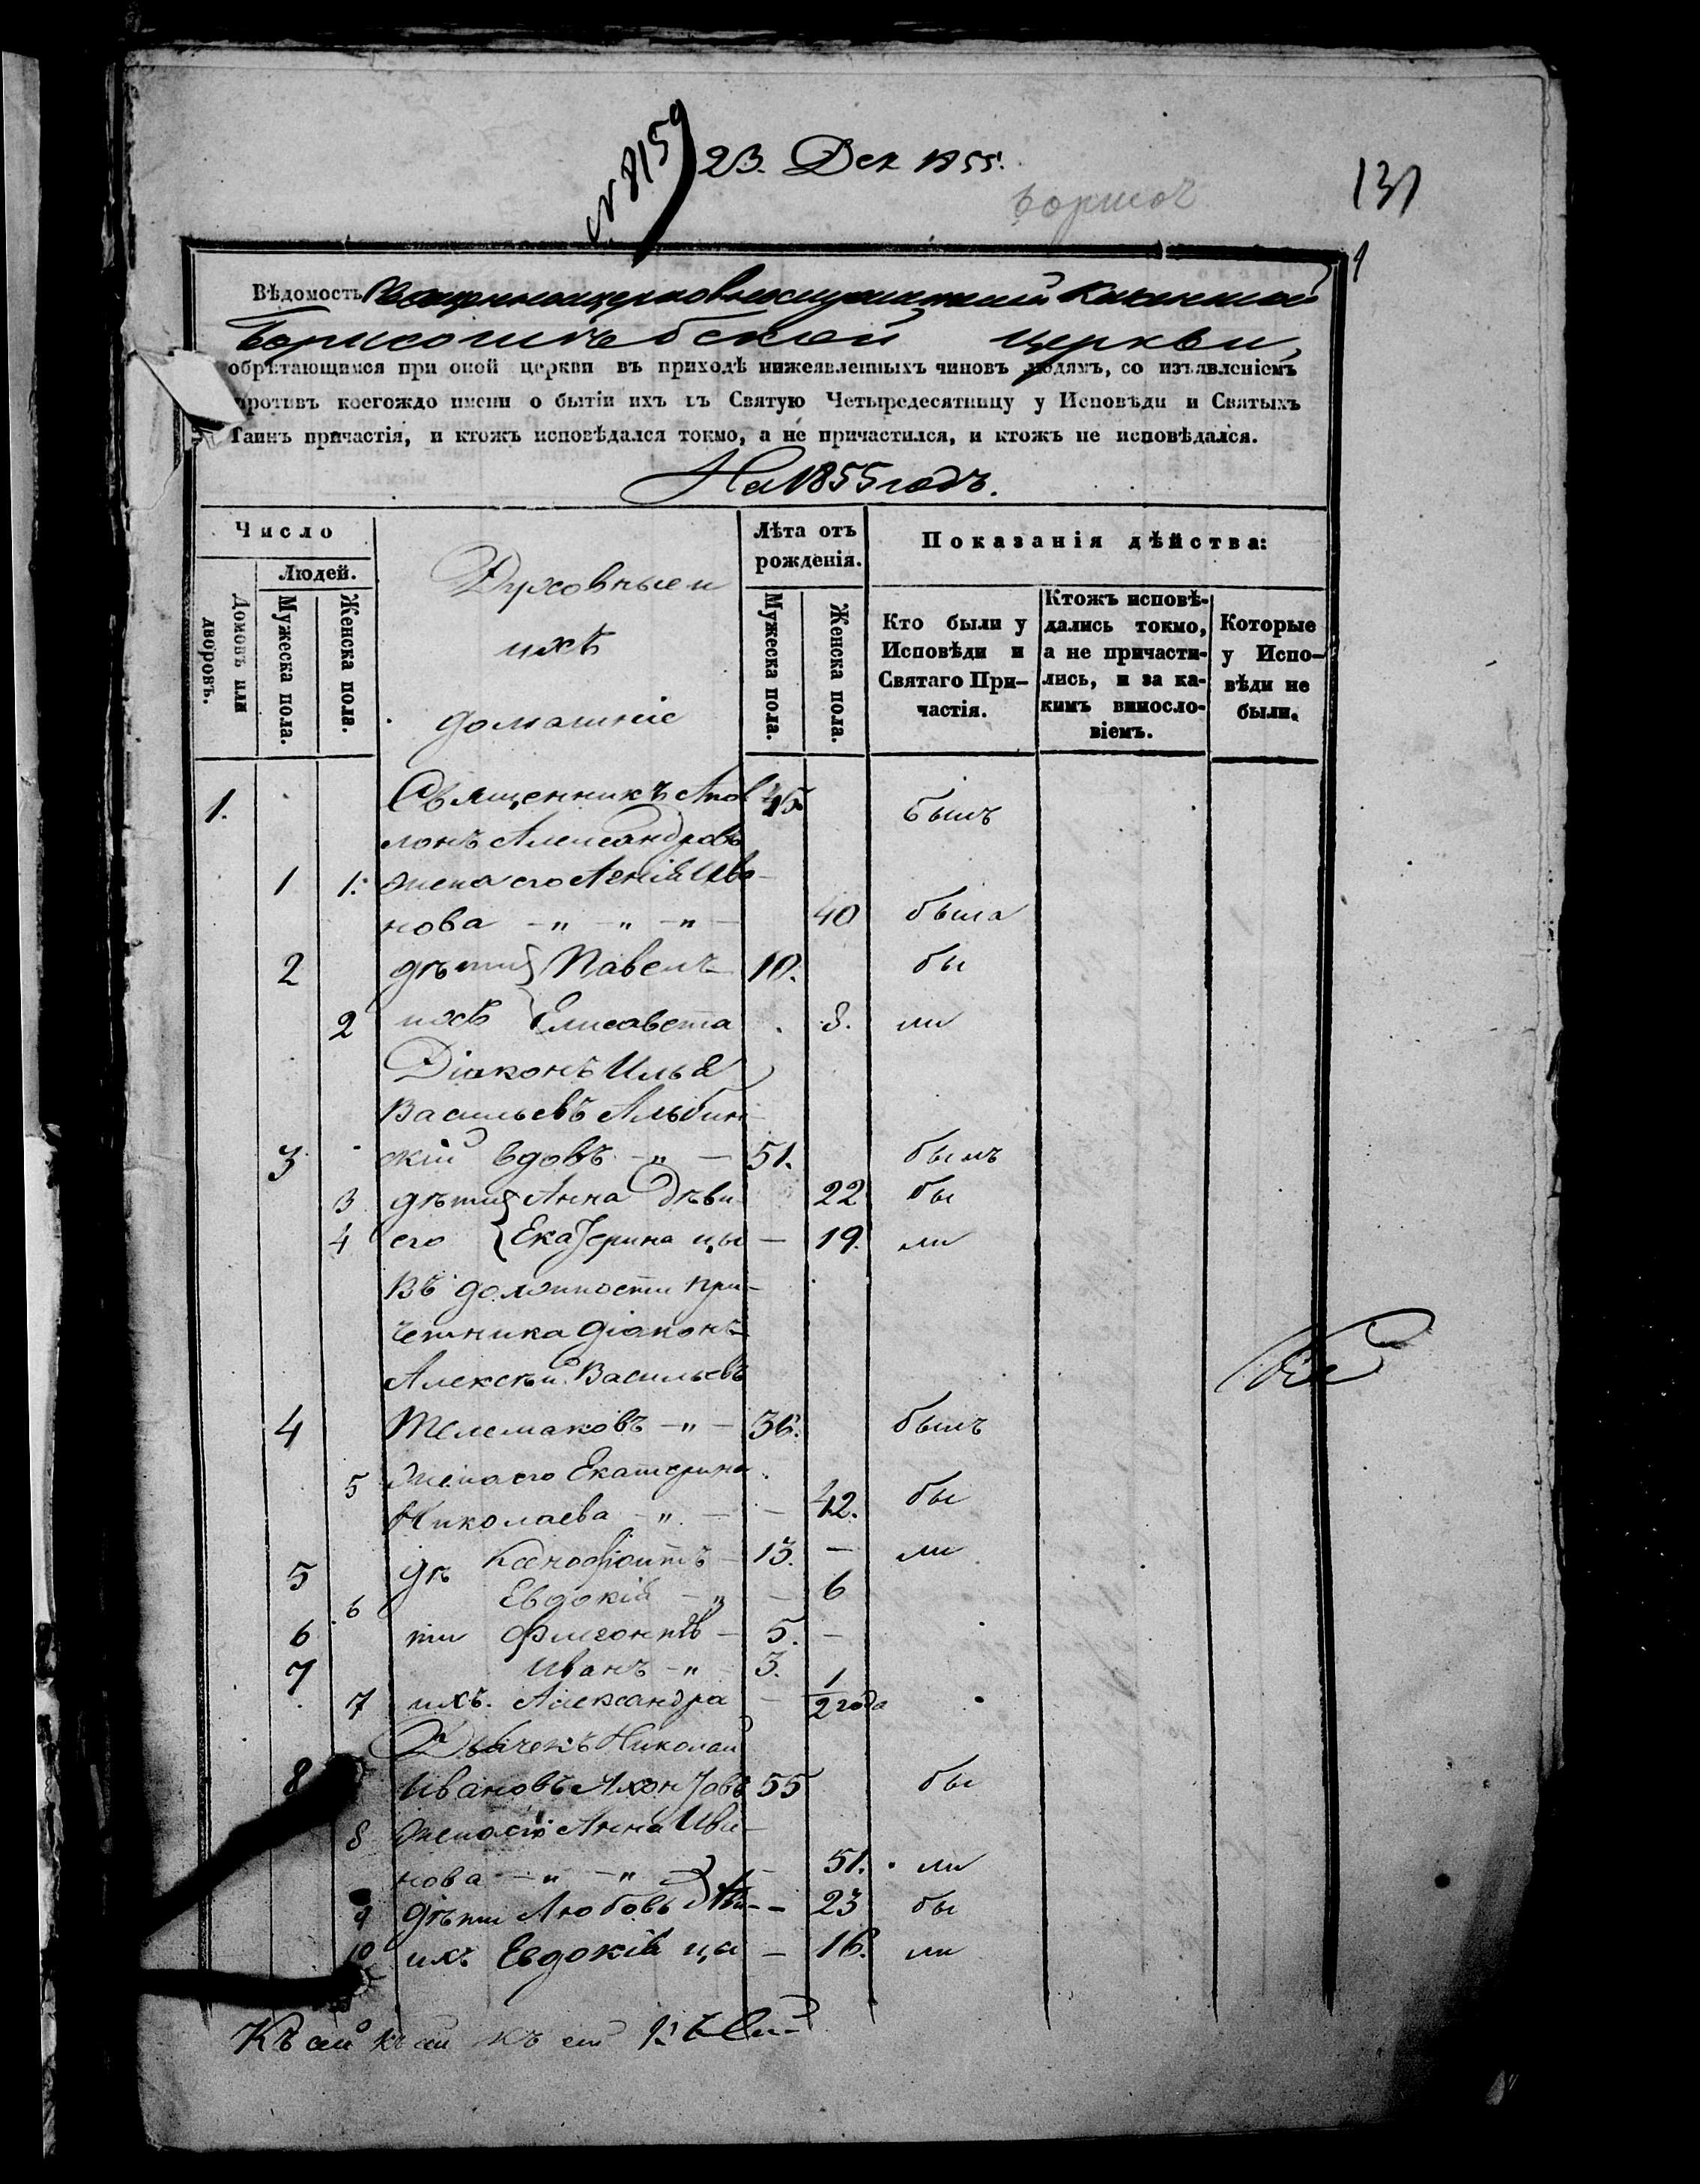 № 8159
23. Дек 1855.
131
1
Вѣдомость
Борисоглѣбской церкви,
обрѣтающимся при оной церкви въ приходѣ нижеявленныхъ чиновъ людямъ, со изъявленіемъ
противъ коегождо имени о бытіи ихъ въ Святую Четыредесятницу у Исповѣди и Святыхъ
Таинъ причастія, и ктожъ исповѣдался токмо, а не причастился, и ктожъ не исповѣдался.
На 1855 годъ.
Число
Людей.
Домовъ или дворовъ.
Мужеска пола.
Женска пола.
Духовные и
ихъ
домашніе
Лѣта отъ рожденія.
Мужеска пола.
Женска пола.
Показанія дѣйства:
Кто были у Исповѣди и Святаго При-частія.
Ктожъ исповѣ-дались токмо, а не причасти-лись, и за ка-кимъ винослo-віемъ.
Которые у Испо-вѣди не были.
1. Священникъ Апол 45 былъ
лонъ Александровъ
1 1. жена его Ива-
нова - " - " - " - 40 была
2 дѣти Павелъ 10. бы
2 ихъ Елисавета 8. ли
Діаконъ Илья
Васильевъ Альбин-
3 скій вдовъ - " - 51. былъ
3 дѣти Анна Дѣви 22 бы
4 его Екатерина цы - 19. ли
Въ должности при-
четника діаконъ
Алексѣй Васильевъ
4 Телемаковъ - " - 36. былъ
5 жена его Екатерина
Николаева - " - - 42. бы
5 дѣ Ксенофонтъ - 13. - ли
6 Евдокія - " - 6
6 ти Флегонтъ - 5. -
7 Иванъ - " 3.
7 ихъ. Александра - 1/2 года
Дьячекъ Николай
8 Ивановъ 55 бы
8 жена его Анна Ива-
нова - " - " - 51. ли
9 дѣти Любовь Дѣви - 23 бы
10 ихъ Евдокія ца - 16. ли
Къ сей къ сей къ сей